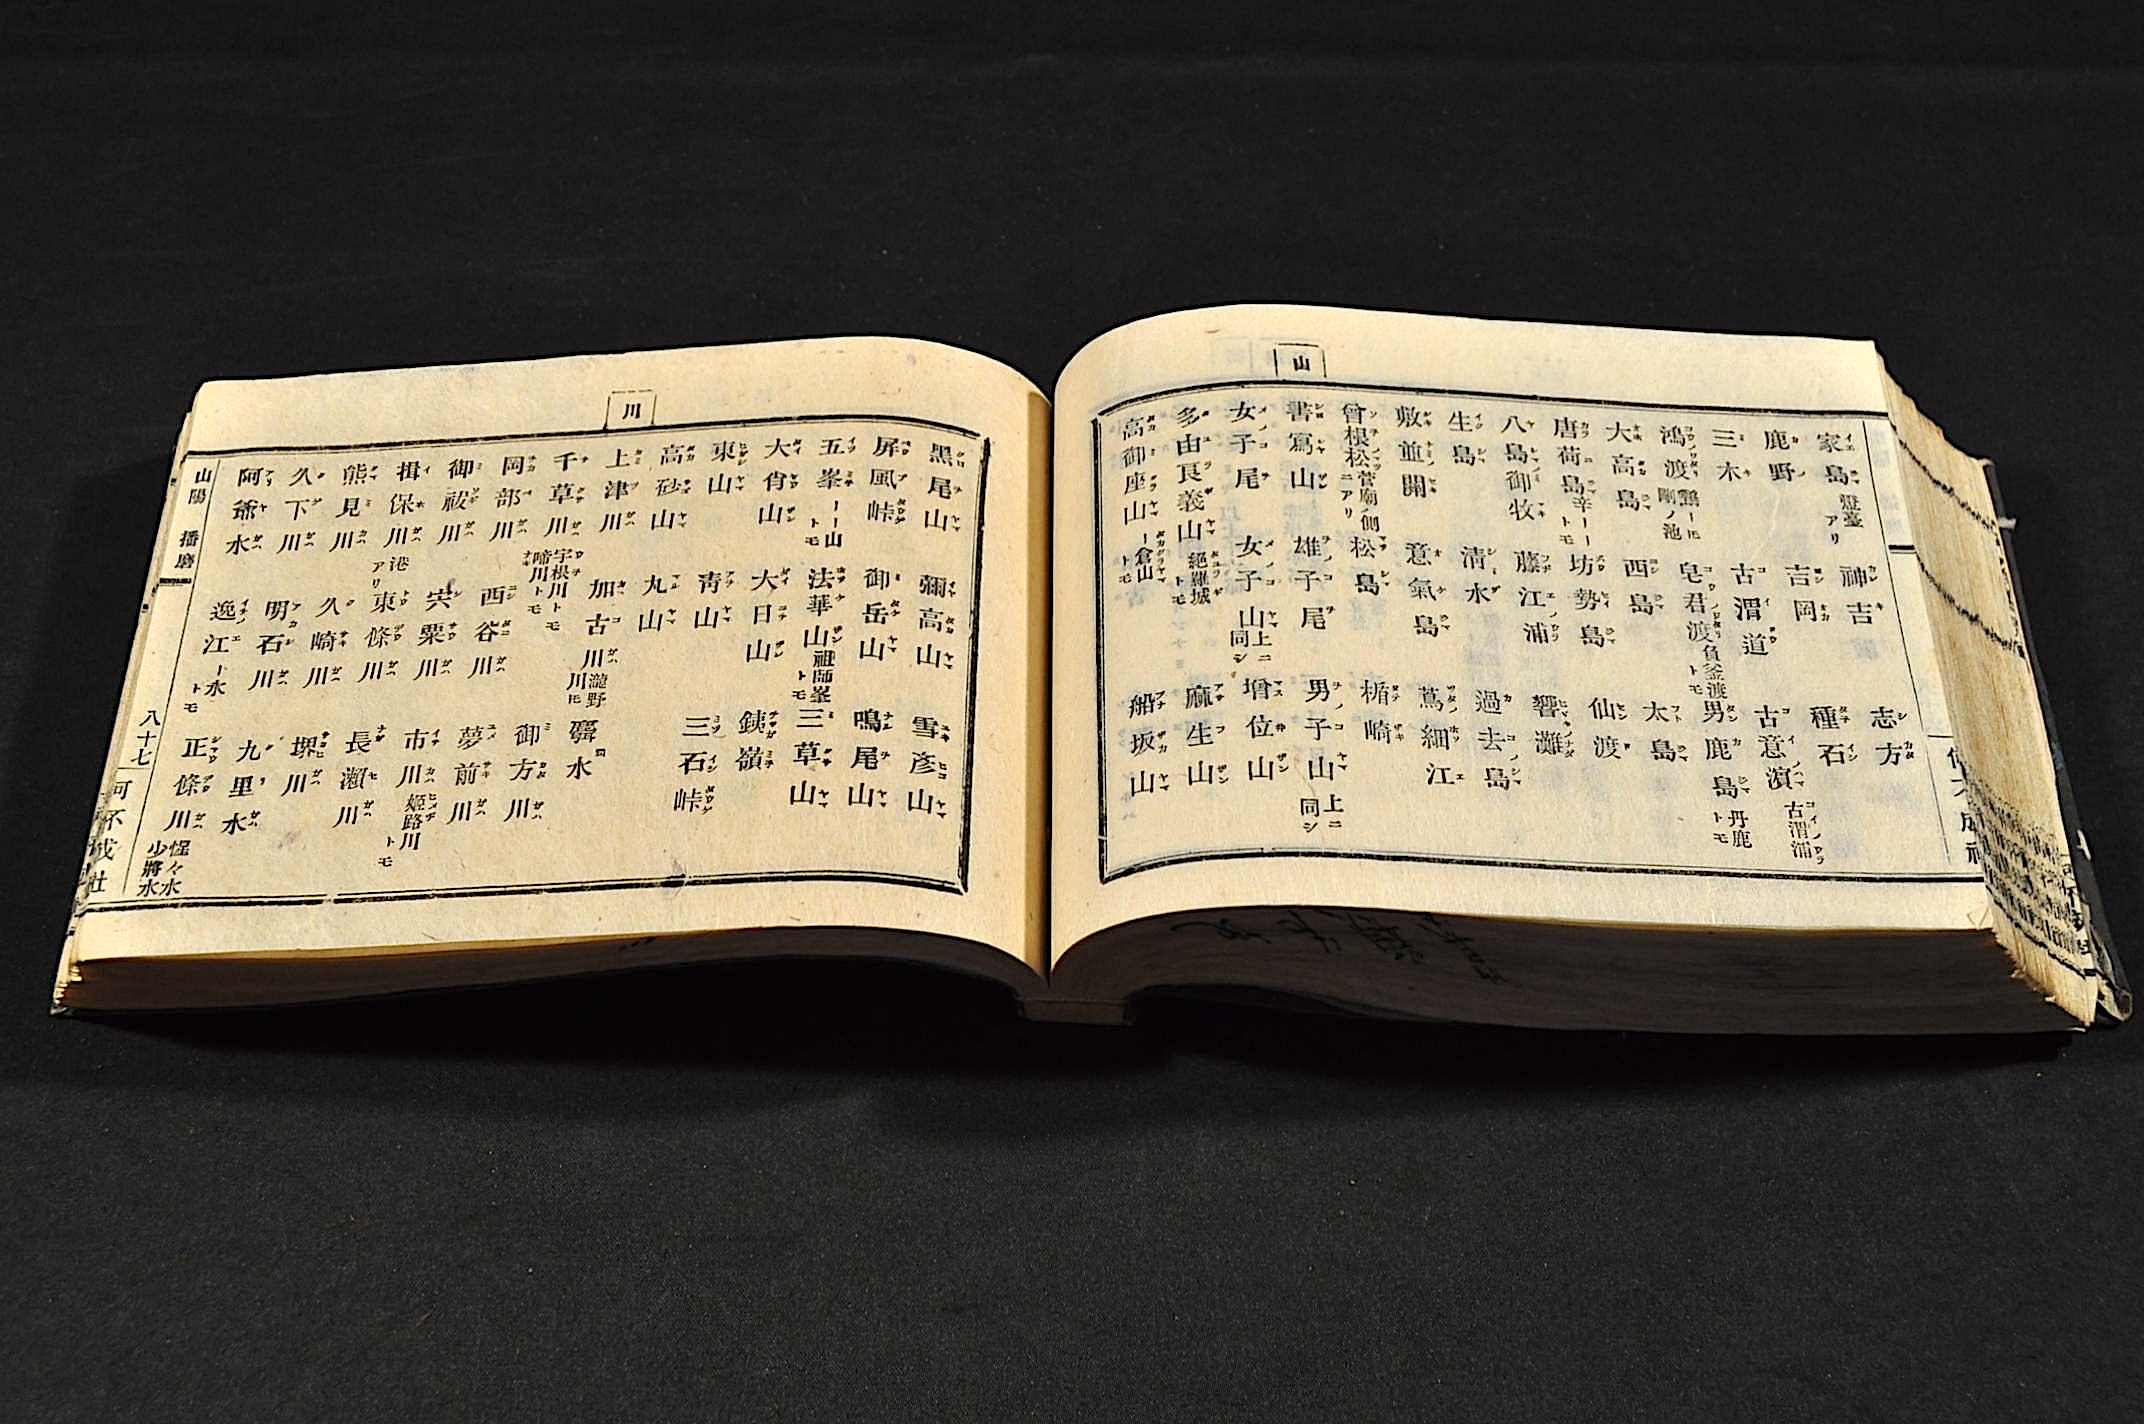 山
家島 燈臺アリ 神吉 志方
鹿野 吉岡 種石
三木 古渭道 古意濵 古渭浦
鴻渡 皂君渡 負釜渡トモ 男鹿島 丹鹿トモ
大高島 西島 太島
唐荷島 辛ーートモ 坊勢島 仙渡
八島御牧 藤江浦 響灘
生島 清水 過去島
敷並開 意氣島 蔦細江
曾根松 菅廟ノ側ニアリ 松島 楯崎
書寫山 雄子尾 男子山 上ニ同シ
女子尾 女子山 上ニ同シ 增位山
多由良義山 絕羅城トモ 麻生山
高御座山 ー倉山トモ 船坂山
川
黑尾山 彌高山 雪彥山
屏風峠 御岳山 鳴尾山
五峯 ーー山トモ 法華山 祖師峯トモ 三草山
大脊山 大日山 銕嶺
東山 靑山 三石峠
高砂山 丸山
上津川 加古川 瀧野川トモ 水
千草川 宇根川トモ 啼川トモ
岡部川 西谷川 御方川
御祓川 宍粟川 夢前川
揖保川 港アリ 東條川 市川 姬路川トモ
熊見川 久崎川 長瀨川
久下川 明石川 堺川
阿爺水 逸江 ー水トモ 九里水
正條川 少將水
山陽 播磨 八十七 可不成社